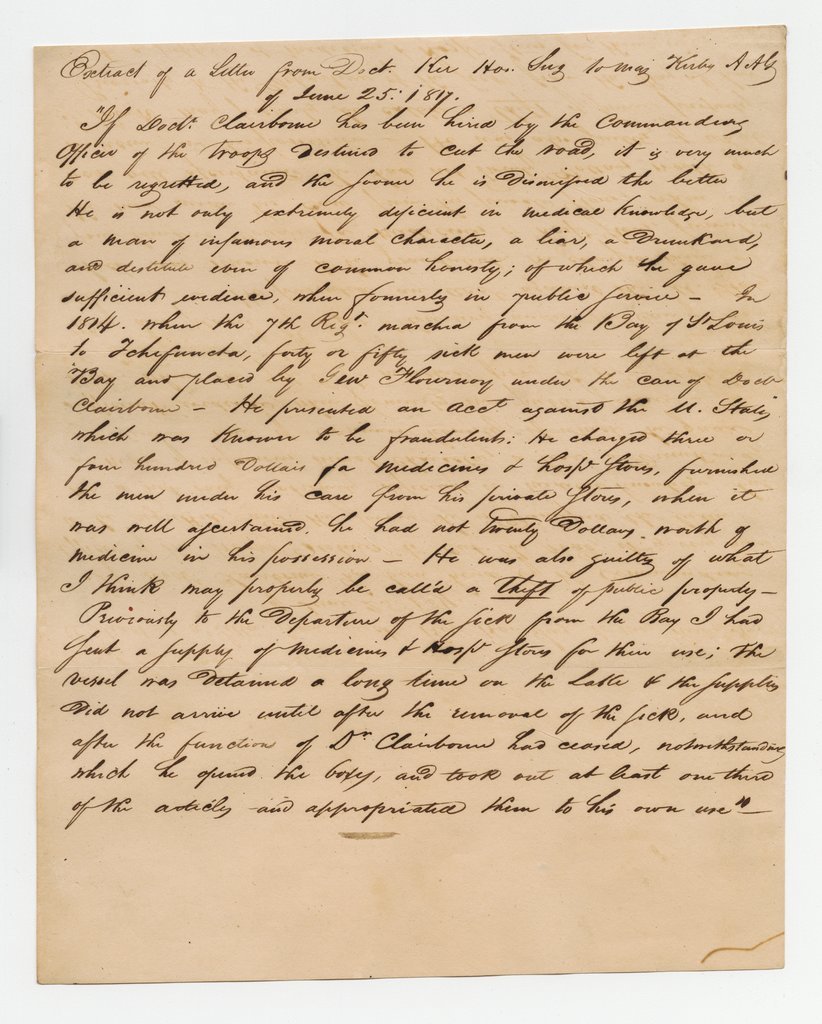 Extract of a Letter from Doct. Ker Hos. Surg to Maj Kirby AAG
of June 25. 1817.
"If Doct. Clairborne has been hired by the Commanding
Officer of the troops Destined to cut the road, it is very much
to be regretted, and the sooner he is Dismissed the better
He is not only extremely deficient in medical knowledge, but
a man of infamous moral character, a liar, a Drunkard,
and destitute even of common honesty; of which he gave
sufficient evidence, when formerly in public service – In
1814. when the 7th Regt. marched from the Bay of St Louis
to Tchefuncta, forty or fifty sick men were left at the
Bay and placed by Genl Flournoy under the care of Doct
Clairborne – He presented an acct against the U. States,
which was known to be fraudulent: He charged three or
four hundred Dollars for medicines & hospl Stores, furnished
the men under his care from his private Stores, when it
was well ascertained he had not twenty Dollars worth of
medicine in his possession – He was also guilty of what
I think may properly be call'd a theft of public property –
Previously to the Departure of the sick from the Bay I had
sent a supply of medicines & Hospl Stores for their use; the
vessel was Detained a long time on the Lake & the supplies
Did not arrive until after the removal of the sick, and
after the function of Dr. Clairborne had ceased, notwithstanding
which he opened the boxes, and took out at least one third
of the articles and appropriated them to his own use" –